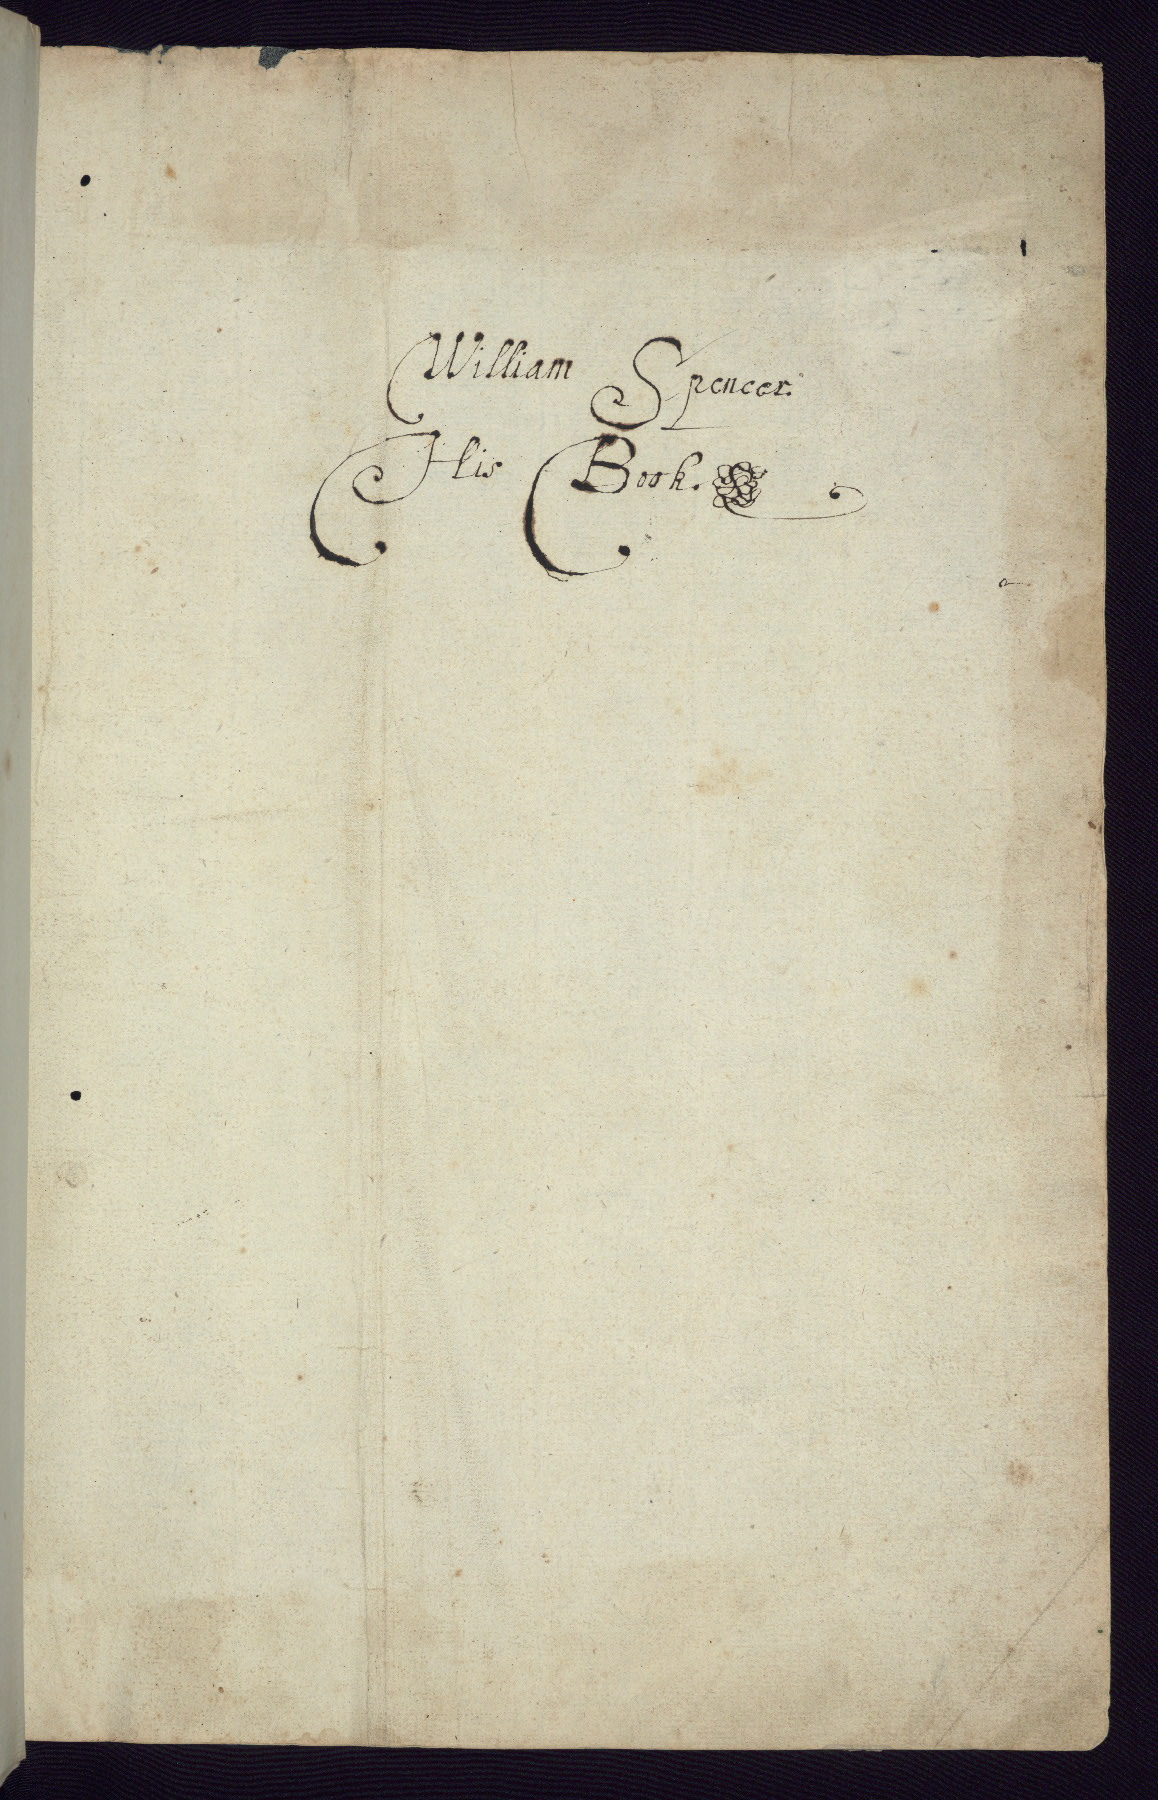 William Spencer.
His Book.